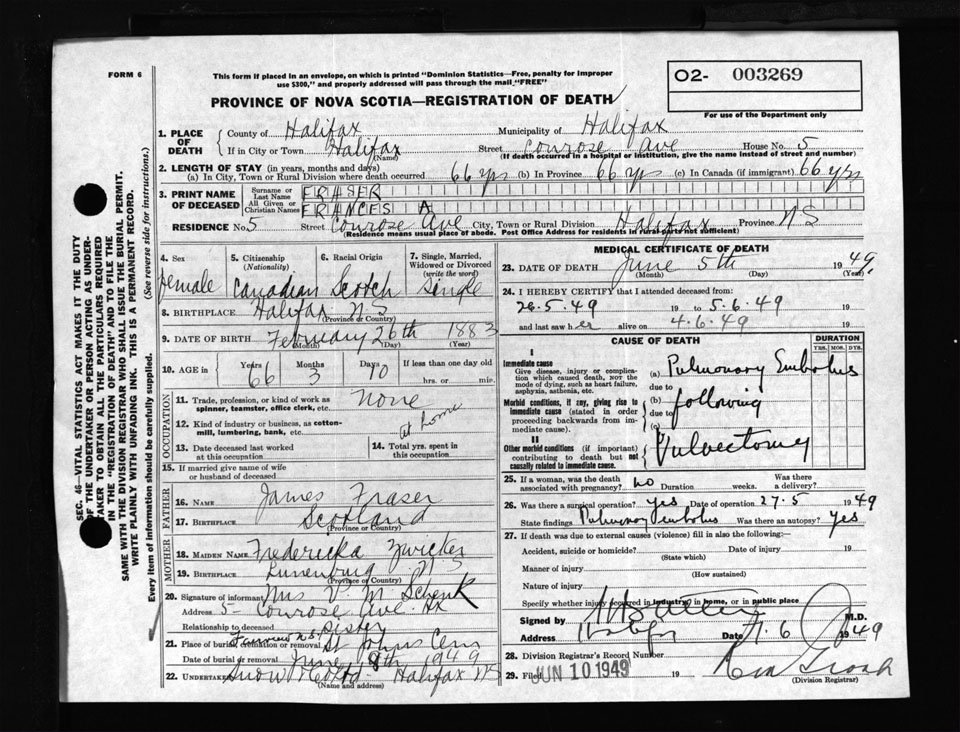 FORM 6
This form if placed in an envelope, on which is printed "Dominion Statistics—Free, penalty for improper
use $300," and properly addressed will pass through the mail "FREE"
O2- 003269
For use of the Department only
PROVINCE OF NOVA SCOTIA—REGISTRATION OF DEATH
1. PLACE OF DEATH
County of Halifax Municipality of Halifax
If in City or Town Halifax (Name) Street Conrose Ave House No. 5
(If death occurred in a hospital or institution, give the name instead of street and number)
2. LENGTH OF STAY (in years, months and days)
(a) In City, Town or Rural Division where death occurred 66 yrs (b) In Province 66 yrs (c) In Canada (if immigrant) 66 yrs
3. PRINT NAME OF DECEASED
Surname or Last Name FRASER
All Given or Christian Names FRANCES A
RESIDENCE No. 5 Street Conrose Ave City, Town or Rural Division Halifax Province N S
(Residence means usual place of abode. Post Office Address for residents in rural parts not sufficient)
4. Sex female
5. Citizenship (Nationality) Canadian
6. Racial Origin Scotch
7. Single, Married, Widowed or Divorced (write the word) Single
8. BIRTHPLACE Halifax N S
(Province or Country)
9. DATE OF BIRTH February 26th 1883
(Month) (Day) (Year)
10. AGE in Years 66 Months 3 Days 10 If less than one day old
hrs. or min.
OCCUPATION
11. Trade, profession, or kind of work as spinner, teamster, office clerk, etc. None
12. Kind of industry or business, as cotton-mill, lumbering, bank, etc. at home
13. Date deceased last worked at this occupation
14. Total yrs. spent in this occupation
15. If married give name of wife or husband of deceased
FATHER
16. NAME James Fraser
17. BIRTHPLACE Scotland
(Province or Country)
MOTHER
18. MAIDEN NAME Fredericka Zwicker
19. BIRTHPLACE Lunenburg N S
(Province or Country)
20. Signature of informant Mrs V. M Schenk
Address 5- Conrose Ave. Hx
Relationship to deceased Sister
21. Place of burial, cremation or removal Fairview N.S. St Johns Cem
Date of burial or removal June 8th 1949
22. UNDERTAKER Snow & Co Ltd - Halifax NS
(Name and address)
MEDICAL CERTIFICATE OF DEATH
23. DATE OF DEATH June 5th 1949
(Month) (Day) (Year)
24. I HEREBY CERTIFY that I attended deceased from:
26.5.49 19 to 5.6.49 19
and last saw her alive on 4.6.49 19
CAUSE OF DEATH DURATION
YRS. MOS. DYS.
I
Immediate cause
Give disease, injury or complication which caused death, not the mode of dying, such as heart failure, asphyxia, asthenia, etc.
(a) Pulmonary Embolus
due to
Morbid conditions, if any, giving rise to immediate cause (stated in order proceeding backwards from immediate cause).
(b) following
due to
(c) Vulvectomy
II
Other morbid conditions (if important) contributing to death but not causally related to immediate cause.
25. If a woman, was the death associated with pregnancy? no Duration weeks. Was there a delivery?
26. Was there a surgical operation? yes Date of operation 27.5 1949
State findings Pulmonary embolus Was there an autopsy? yes
27. If death was due to external causes (violence) fill in also the following:—
Accident, suicide or homicide? Date of injury 19
(State which)
Manner of injury
(How sustained)
Nature of injury
Specify whether injury occurred in industry, in home, or in public place
Signed by M.D.
Address Halifax Date 7.6 1949
28. Division Registrar's Record Number
29. Filed JUN 10 1949 19
(Division Registrar)
SEC. 46—VITAL STATISTICS ACT MAKES IT THE DUTY
OF THE UNDERTAKER OR PERSON ACTING AS UNDER-
TAKER TO OBTAIN ALL THE PARTICULARS REQUIRED
IN THE "REGISTRATION OF DEATH" AND TO FILE THE
SAME WITH THE DIVISION REGISTRAR WHO SHALL ISSUE THE BURIAL PERMIT.
WRITE PLAINLY WITH UNFADING INK. THIS IS A PERMANENT RECORD.
Every item of information should be carefully supplied. (See reverse side for instructions.)